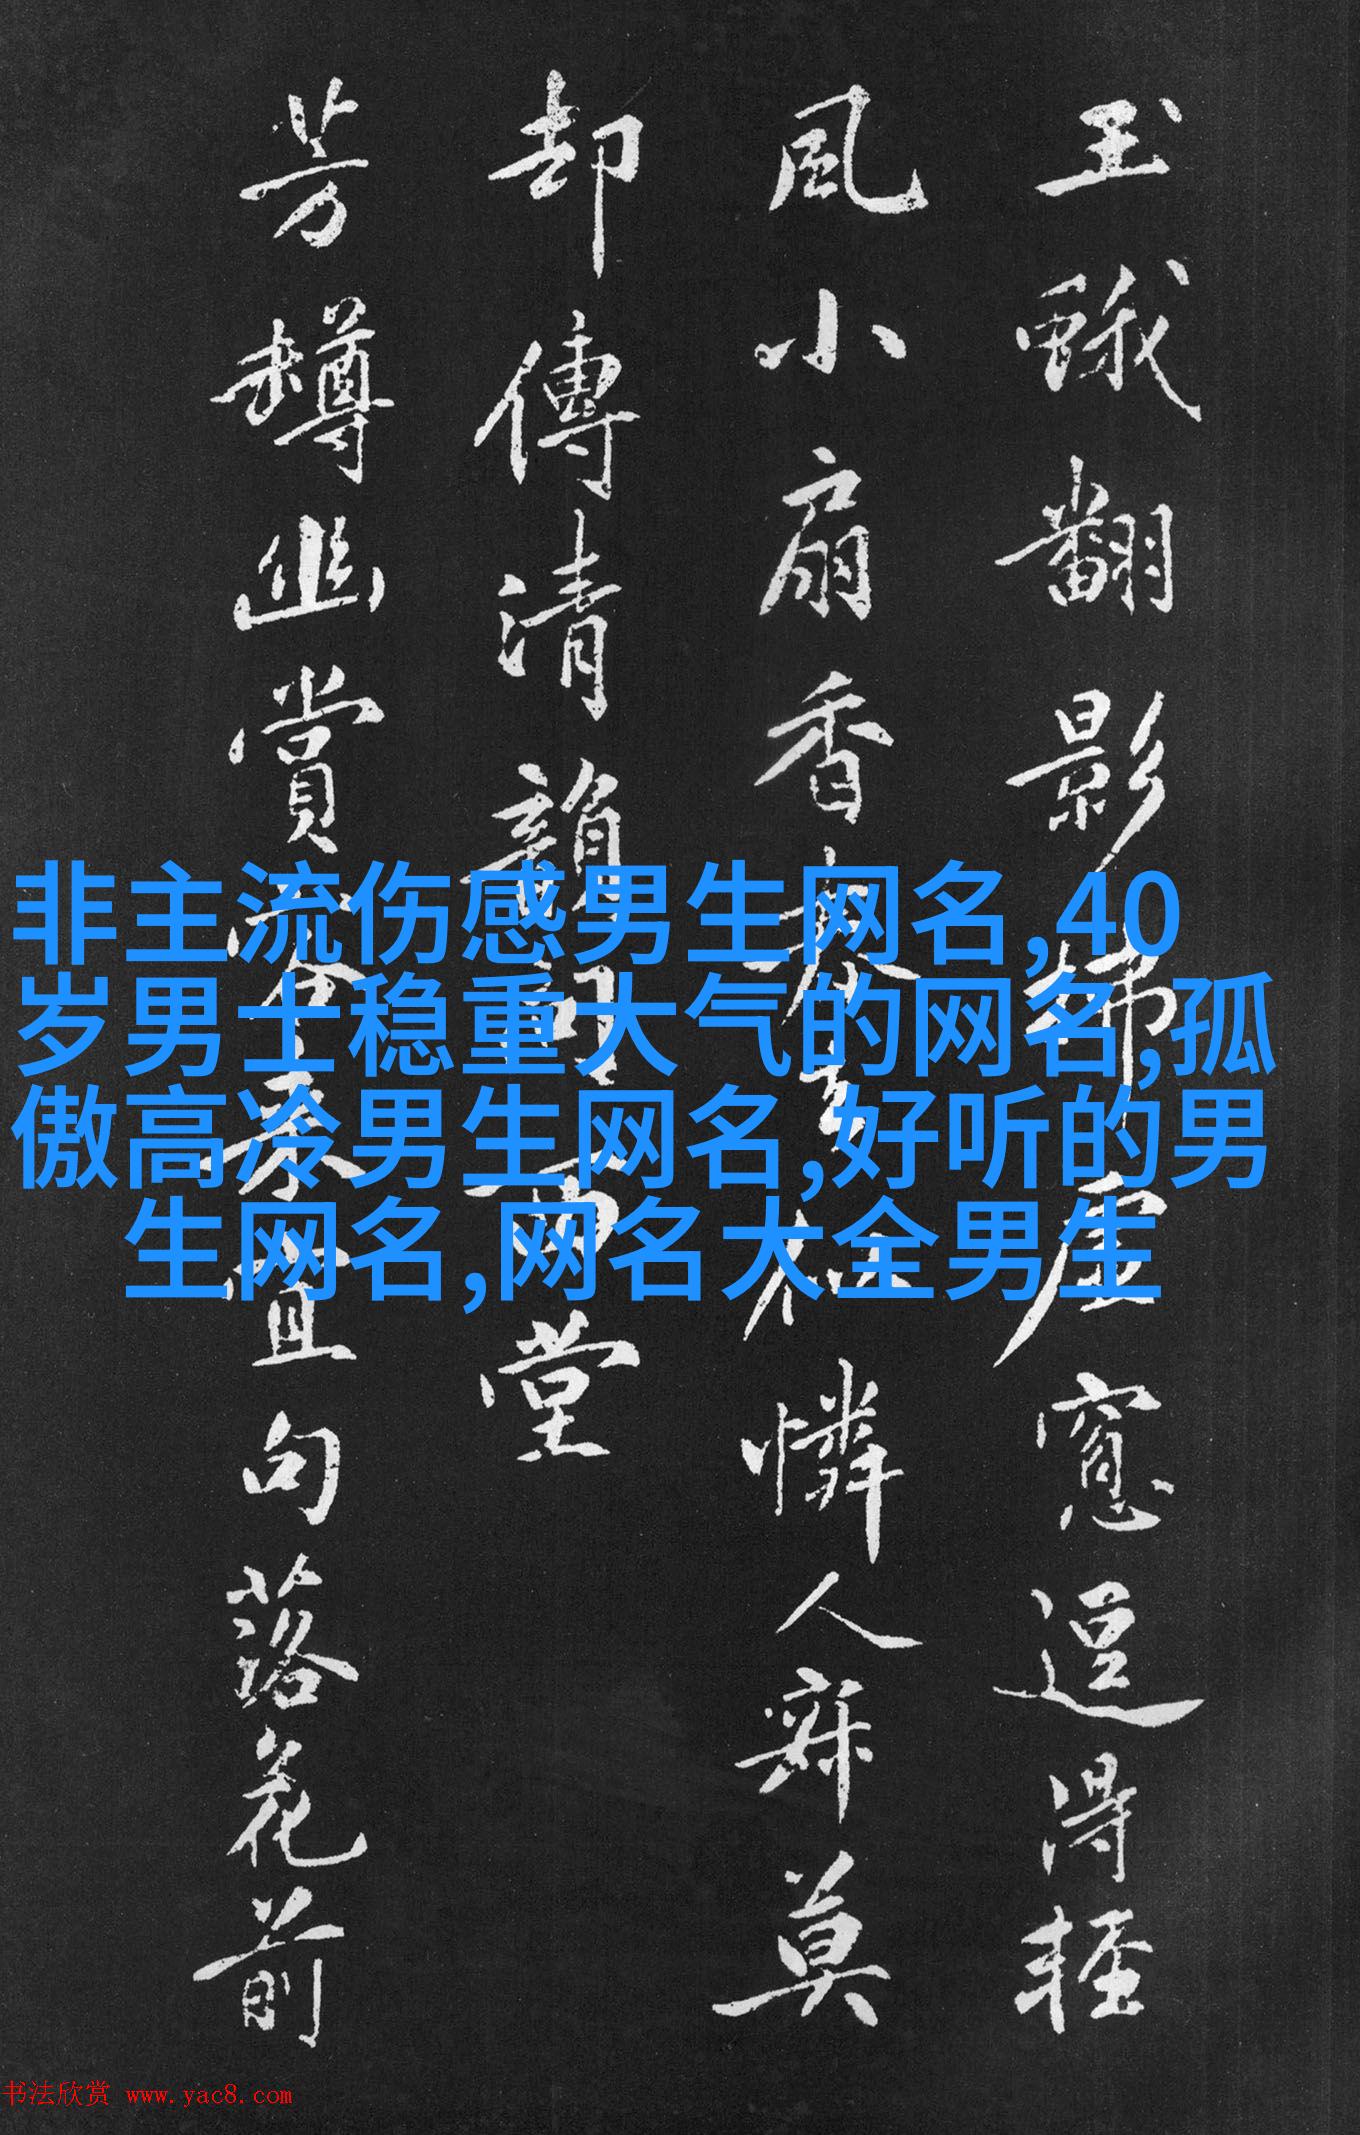 玉蛾翻影掃虛窓逗得輕
風小扇香 憐人寐莫
却傳清韻 堂
芳樽幽賞 宜句落花前
非主流伤感男生网名,40
岁男士稳重大气的网名,孤
傲高冷男生网名,好听的男
生网名,网名大全男生
书法欣赏 www.yac8.com